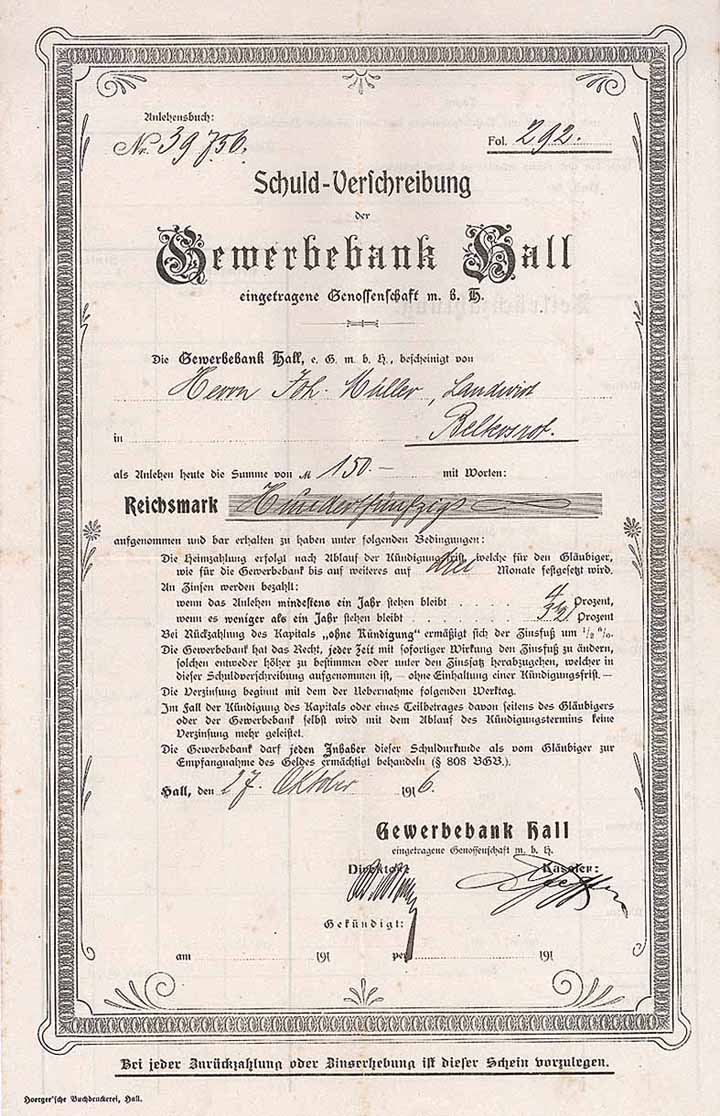 Anlehensbuch:
No. 39756. Fol. 292.
Schuld-Verschreibung
der
Gewerbebank Hall
eingetragene Genossenschaft m. b. H.
Die Gewerbebank Hall, e. G. m. b. H., bescheinigt von
Herrn Joh. Müller, Landwirt
in
als Anlehen heute die Summe von M 150.— mit Worten:
Reichsmark Hundertfünfzig
aufgenommen und bar erhalten zu haben unter folgenden Bedingungen:
Die Heimzahlung erfolgt nach Ablauf der Kündigungsfrist, welche für den Gläubiger,
wie für die Gewerbebank bis auf weiteres auf drei Monate festgesetzt wird.
An Zinsen werden bezahlt:
wenn das Anlehen mindestens ein Jahr stehen bleibt . . . . 4 Prozent,
wenn es weniger als ein Jahr stehen bleibt . . . . . . 3 1/2 Prozent
Bei Rückzahlung des Kapitals „ohne Kündigung“ ermäßigt sich der Zinsfuß um 1/2 %.
Die Gewerbebank hat das Recht, jeder Zeit mit sofortiger Wirkung den Zinsfuß zu ändern,
solchen entweder höher zu bestimmen oder unter den Zinsatz herabzugehen, welcher in
dieser Schuldverschreibung aufgenommen ist, — ohne Einhaltung einer Kündigungsfrist.—
Die Verzinsung beginnt mit dem der Uebernahme folgenden Werktag.
Im Fall der Kündigung des Kapitals oder eines Teilbetrages davon seitens des Gläubigers
oder der Gewerbebank selbst wird mit dem Ablauf des Kündigungstermins keine
Verzinsung mehr geleistet.
Die Gewerbebank darf jeden Inhaber dieser Schuldurkunde als vom Gläubiger zur
Empfangnahme des Geldes ermächtigt behandeln (§ 808 BGB.).
Hall, den 27. Oktober 1916.
Gewerbebank Hall
eingetragene Genossenschaft m. b. H.
Direktor: Kassier:
Gekündigt:
am 191 per 191
Bei jeder Zurückzahlung oder Zinserhebung ist dieser Schein vorzulegen.
Hoerger'sche Buchdruckerei, Hall.